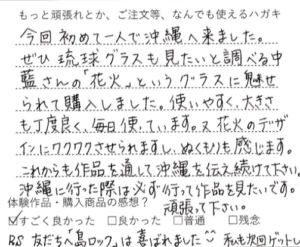 もっと頑張れとか、ご注文等、なんでも使えるハガキ
今回初めて一人で沖縄へ来ました。
ぜひ琉球グラスも見たいと調べる中
藍さんの「花火」というグラスに魅せ
られて購入しました。使いやすく、大きさ
も丁度良く、毎日使っています。又花火のデザ
インにワクワクさせられますし、ぬくもりも感じます。
これからも作品を通して沖縄を伝え続けて下さい。
沖縄に行った際は必ず行って作品を見たいです。
頑張って下さい。
体験作品・購入商品の感想?
☑すごく良かった □良かった □普通 □残念
P.S 友だちへ島ロックは喜ばれました 私も次回ゲットし